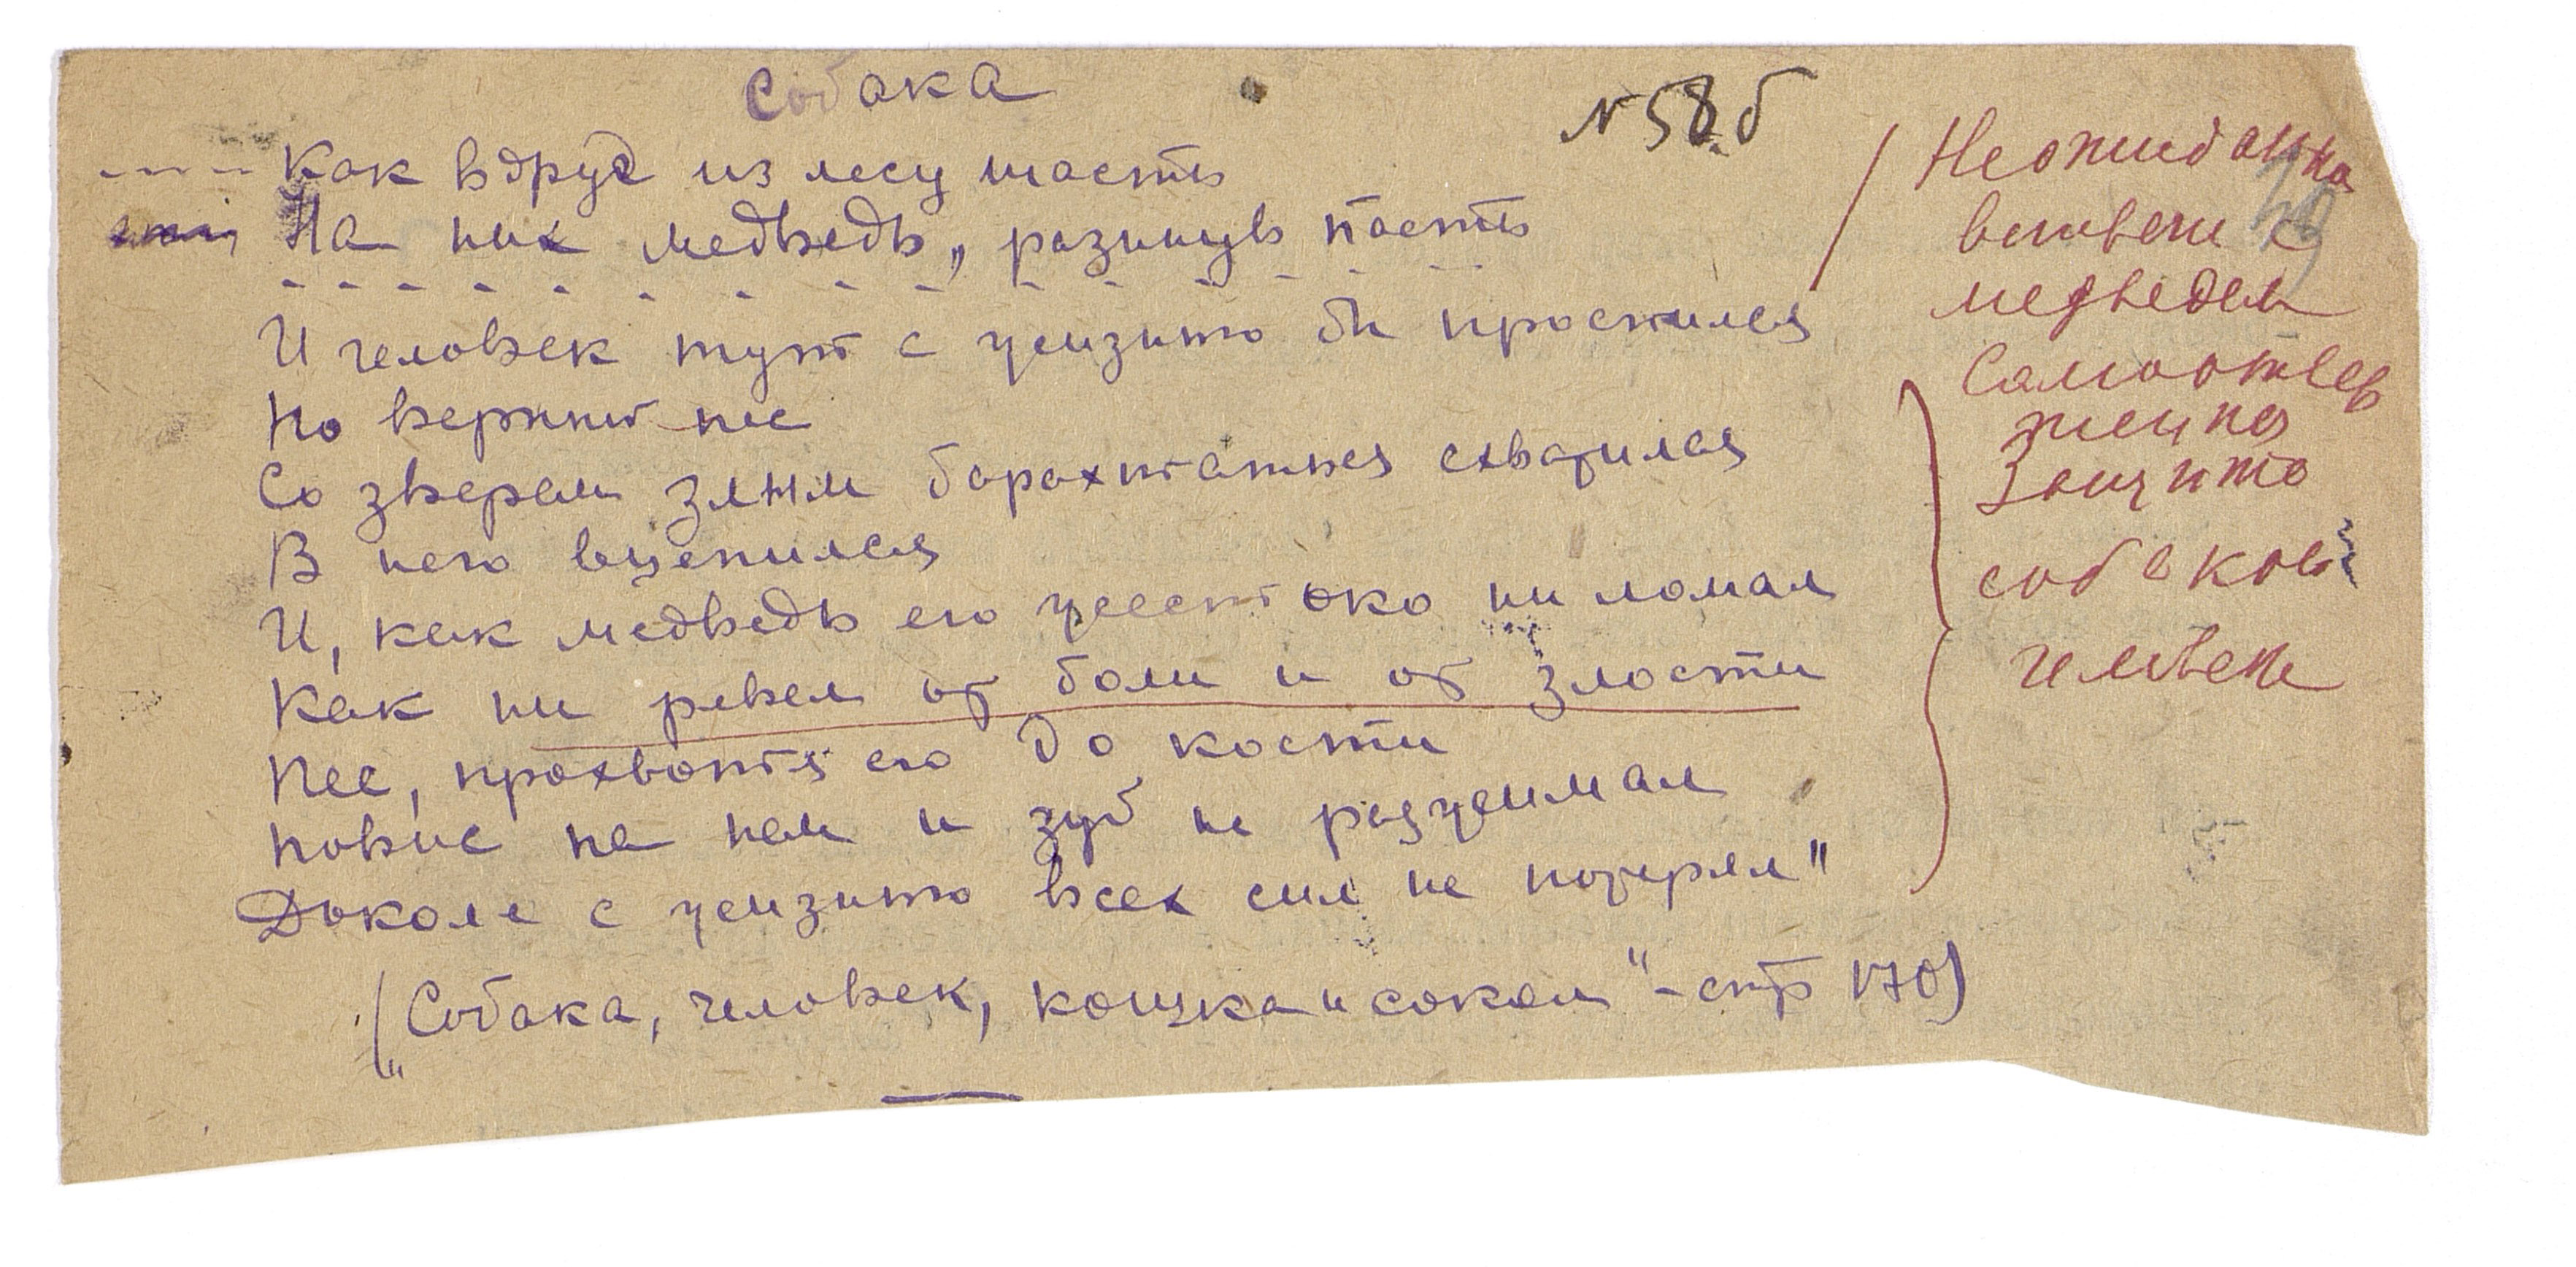 Собака
N 58.б
---- Как вдруг из лесу шасть
На них медведь, разинув пасть
- - - - - - - - - - - - - -
И человек тут с жизнию бы простился
Но верный пес
Со зверем злым барахтаться схватился
В него вцепился
И, как медведь его жестоко ни ломал
Как ни ревел от боли и от злости
Пес, прохватя его до кости
Повис на нем и зуб не разжимал
Доколе с жизнию всех сил не потерял"
("Собака, человек, кошка и сокол" - стр 170)
Неожиданна
медведем
Самоотвер
женна
Защита
собакой
человека